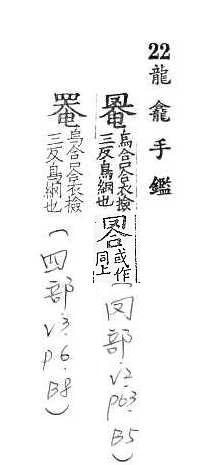 22 龍龕手鑑
罨 烏合 合衣撿
三反鳥網也
或作
同上
(网部 V2. P63. B5)
罨 烏合 合衣撿
三反鳥網也
(四部 V3. P.6. B8)